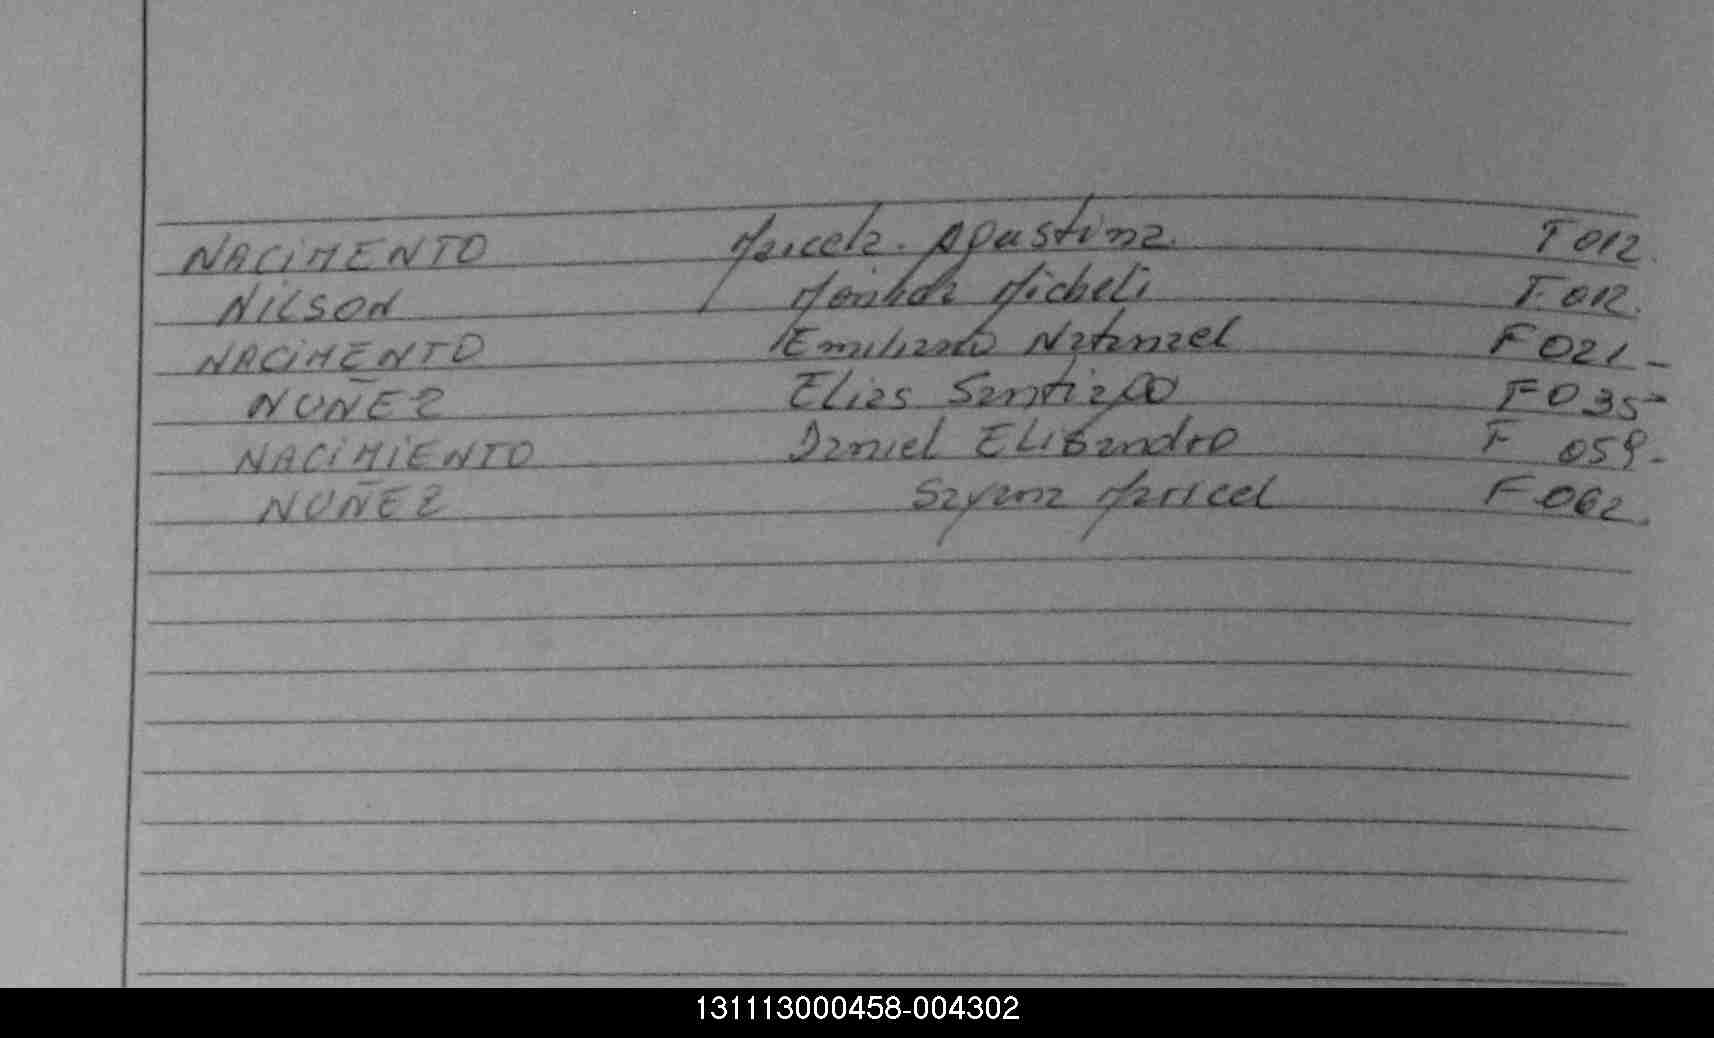 NACIMENTO Maricela. Agustina. F 012.
NILSON Micheli F. 012.
NACIMENTO Emiliano Natanael F 021-
NUÑEZ Elias Santiago F 035-
NACIMIENTO Daniel Elisandro F 059-
NUÑEZ Sayana Maricel F 062.
131113000458-004302